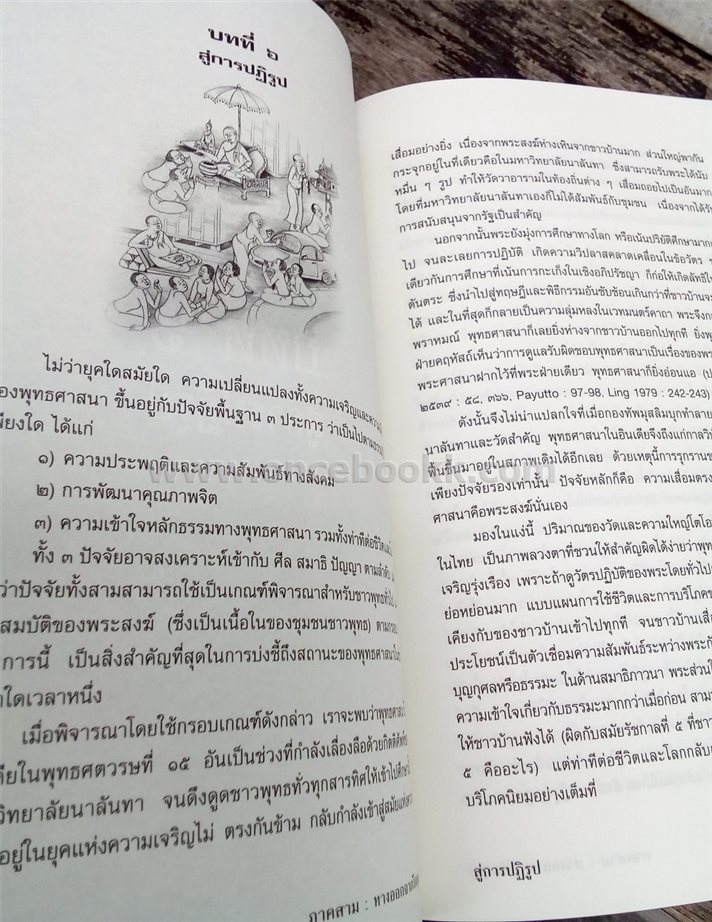 บทที่ ๖
สู่การปฏิรูป
ไม่ว่ายุคใดสมัยใด ความเปลี่ยนแปลงทั้งความเจริญและความ
ของพุทธศาสนา ขึ้นอยู่กับปัจจัยพื้นฐาน ๓ ประการ ว่าเป็นไปตามธรรม
เพียงใด ได้แก่
๑) ความประพฤติและความสัมพันธ์ทางสังคม
๒) การพัฒนาคุณภาพจิต
๓) ความเข้าใจหลักธรรมทางพุทธศาสนา รวมทั้งท่าทีต่อชีวิต
ทั้ง ๓ ปัจจัยอาจสงเคราะห์เข้ากับ ศีล สมาธิ ปัญญา ตามลำดับ
ว่าปัจจัยทั้งสามสามารถใช้เป็นเกณฑ์พิจารณาสำหรับชาวพุทธทั่วไป
สมบัติของพระสงฆ์ (ซึ่งเป็นเนื้อในของชุมชนชาวพุทธ) ตาม
การนี้ เป็นสิ่งสำคัญที่สุดในการบ่งชี้ถึงสถานะของพุทธศาสนา
ใดเวลาหนึ่ง
เมื่อพิจารณาโดยใช้กรอบเกณฑ์ดังกล่าว เราจะพบว่าพุทธศาสนา
ในพุทธศตวรรษที่ ๑๕ อันเป็นช่วงที่กำลังเลื่องลือด้วยกิตติศัพท์
วิทยาลัยนาลันทา จนดึงดูดชาวพุทธทั่วทุกสารทิศให้เข้าไปศึกษา
อยู่ในยุคแห่งความเจริญไม่ ตรงกันข้าม กลับกำลังเข้าสู่สมัยแห่ง
ภาคสาม : ทางออก
เสื่อมอย่างยิ่ง เนื่องจากพระสงฆ์ห่างเหินจากชาวบ้านมาก ส่วนใหญ่พากัน
กระจุกอยู่ในที่เดียวคือในมหาวิทยาลัยนาลันทา ซึ่งสามารถรับพระได้นับ
หมื่น ๆ รูป ทำให้วัดวาอารามในท้องถิ่นต่าง ๆ เสื่อมถอยไปเป็นอันมาก
โดยที่มหาวิทยาลัยนาลันทาเองก็ไม่ได้สัมพันธ์กับชุมชน เนื่องจากได้รับ
การสนับสนุนจากรัฐเป็นสำคัญ
นอกจากนั้นพระยังมุ่งการศึกษาทางโลก หรือเน้นปริยัติศึกษามาก
ไป จนละเลยการปฏิบัติ เกิดความวิปลาสคลาดเคลื่อนในข้อวัตร
เดียวกันการศึกษาที่เน้นการถกเถียงในเชิงอภิปรัชญา ก็ก่อให้เกิดลัทธิ
ตันตระ ซึ่งนำไปสู่ทฤษฎีและพิธีกรรมอันซับซ้อนเกินกว่าที่ชาวบ้าน
ได้ และในที่สุดก็กลายเป็นความลุ่มหลงในเวทมนตร์คาถา พระจึง
พราหมณ์ พุทธศาสนาก็เลยยิ่งห่างจากชาวบ้านออกไปทุกที ยิ่ง
ฝ่ายคฤหัสถ์เห็นว่าการดูแลรับผิดชอบพุทธศาสนาเป็นเรื่องของพระ
พระศาสนาฝากไว้ที่พระฝ่ายเดียว พุทธศาสนาก็ยิ่งอ่อนแอ
๒๕๓๙ : ๕๘, ๓๖๖, Payutto : 97-98, Ling 1979 : 242-243)
ดังนั้นจึงไม่น่าแปลกใจที่เมื่อกองทัพมุสลิมบุกทำลาย
นาลันทาและวัดสำคัญ พุทธศาสนาในอินเดียจึงถึงแก่กาล
ฟื้นขึ้นมาอยู่ในสภาพเดิมได้อีกเลย ด้วยเหตุนี้การรุกราน
เพียงปัจจัยรองเท่านั้น ปัจจัยหลักก็คือ ความเสื่อมตรง
ศาสนาคือพระสงฆ์นั่นเอง
มองในแง่นี้ ปริมาณของวัดและความใหญ่โต
ในไทย เป็นภาพลวงตาที่ชวนให้สำคัญผิดได้ง่ายว่า
เจริญรุ่งเรือง เพราะถ้าดูวัตรปฏิบัติของพระโดยทั่วไป
ย่อหย่อนมาก แบบแผนการใช้ชีวิตและการบริโภค
เคียงกับของชาวบ้านเข้าไปทุกที จนชาวบ้าน
ประโยชน์เป็นตัวเชื่อมความสัมพันธ์ระหว่างพระ
บุญกุศลหรือธรรมะ ในด้านสมาธิภาวนา พระส่วน
ความเข้าใจเกี่ยวกับธรรมะมากกว่าเมื่อก่อน
ให้ชาวบ้านฟังได้ (ผิดกับสมัยรัชกาลที่ ๕ ที่
๕ คืออะไร) แต่ท่าทีต่อชีวิตและโลก
บริโภคนิยมอย่างเต็มที่
สู่การปฏิรูป